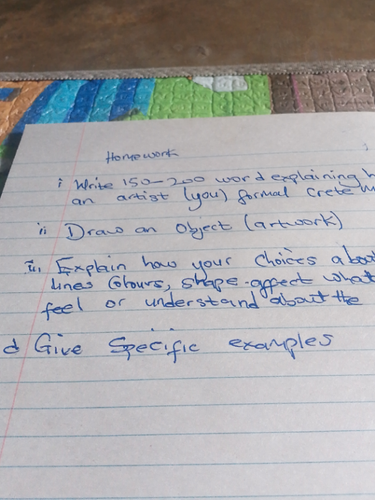 Homework
i Write 150-200 word explaining h
an artist (you) formal crete m
ii Draw an object (artwork)
iii, Explain how your choices about
lines Colours, shape affect what
feel or understand about the
d Give Specific examples